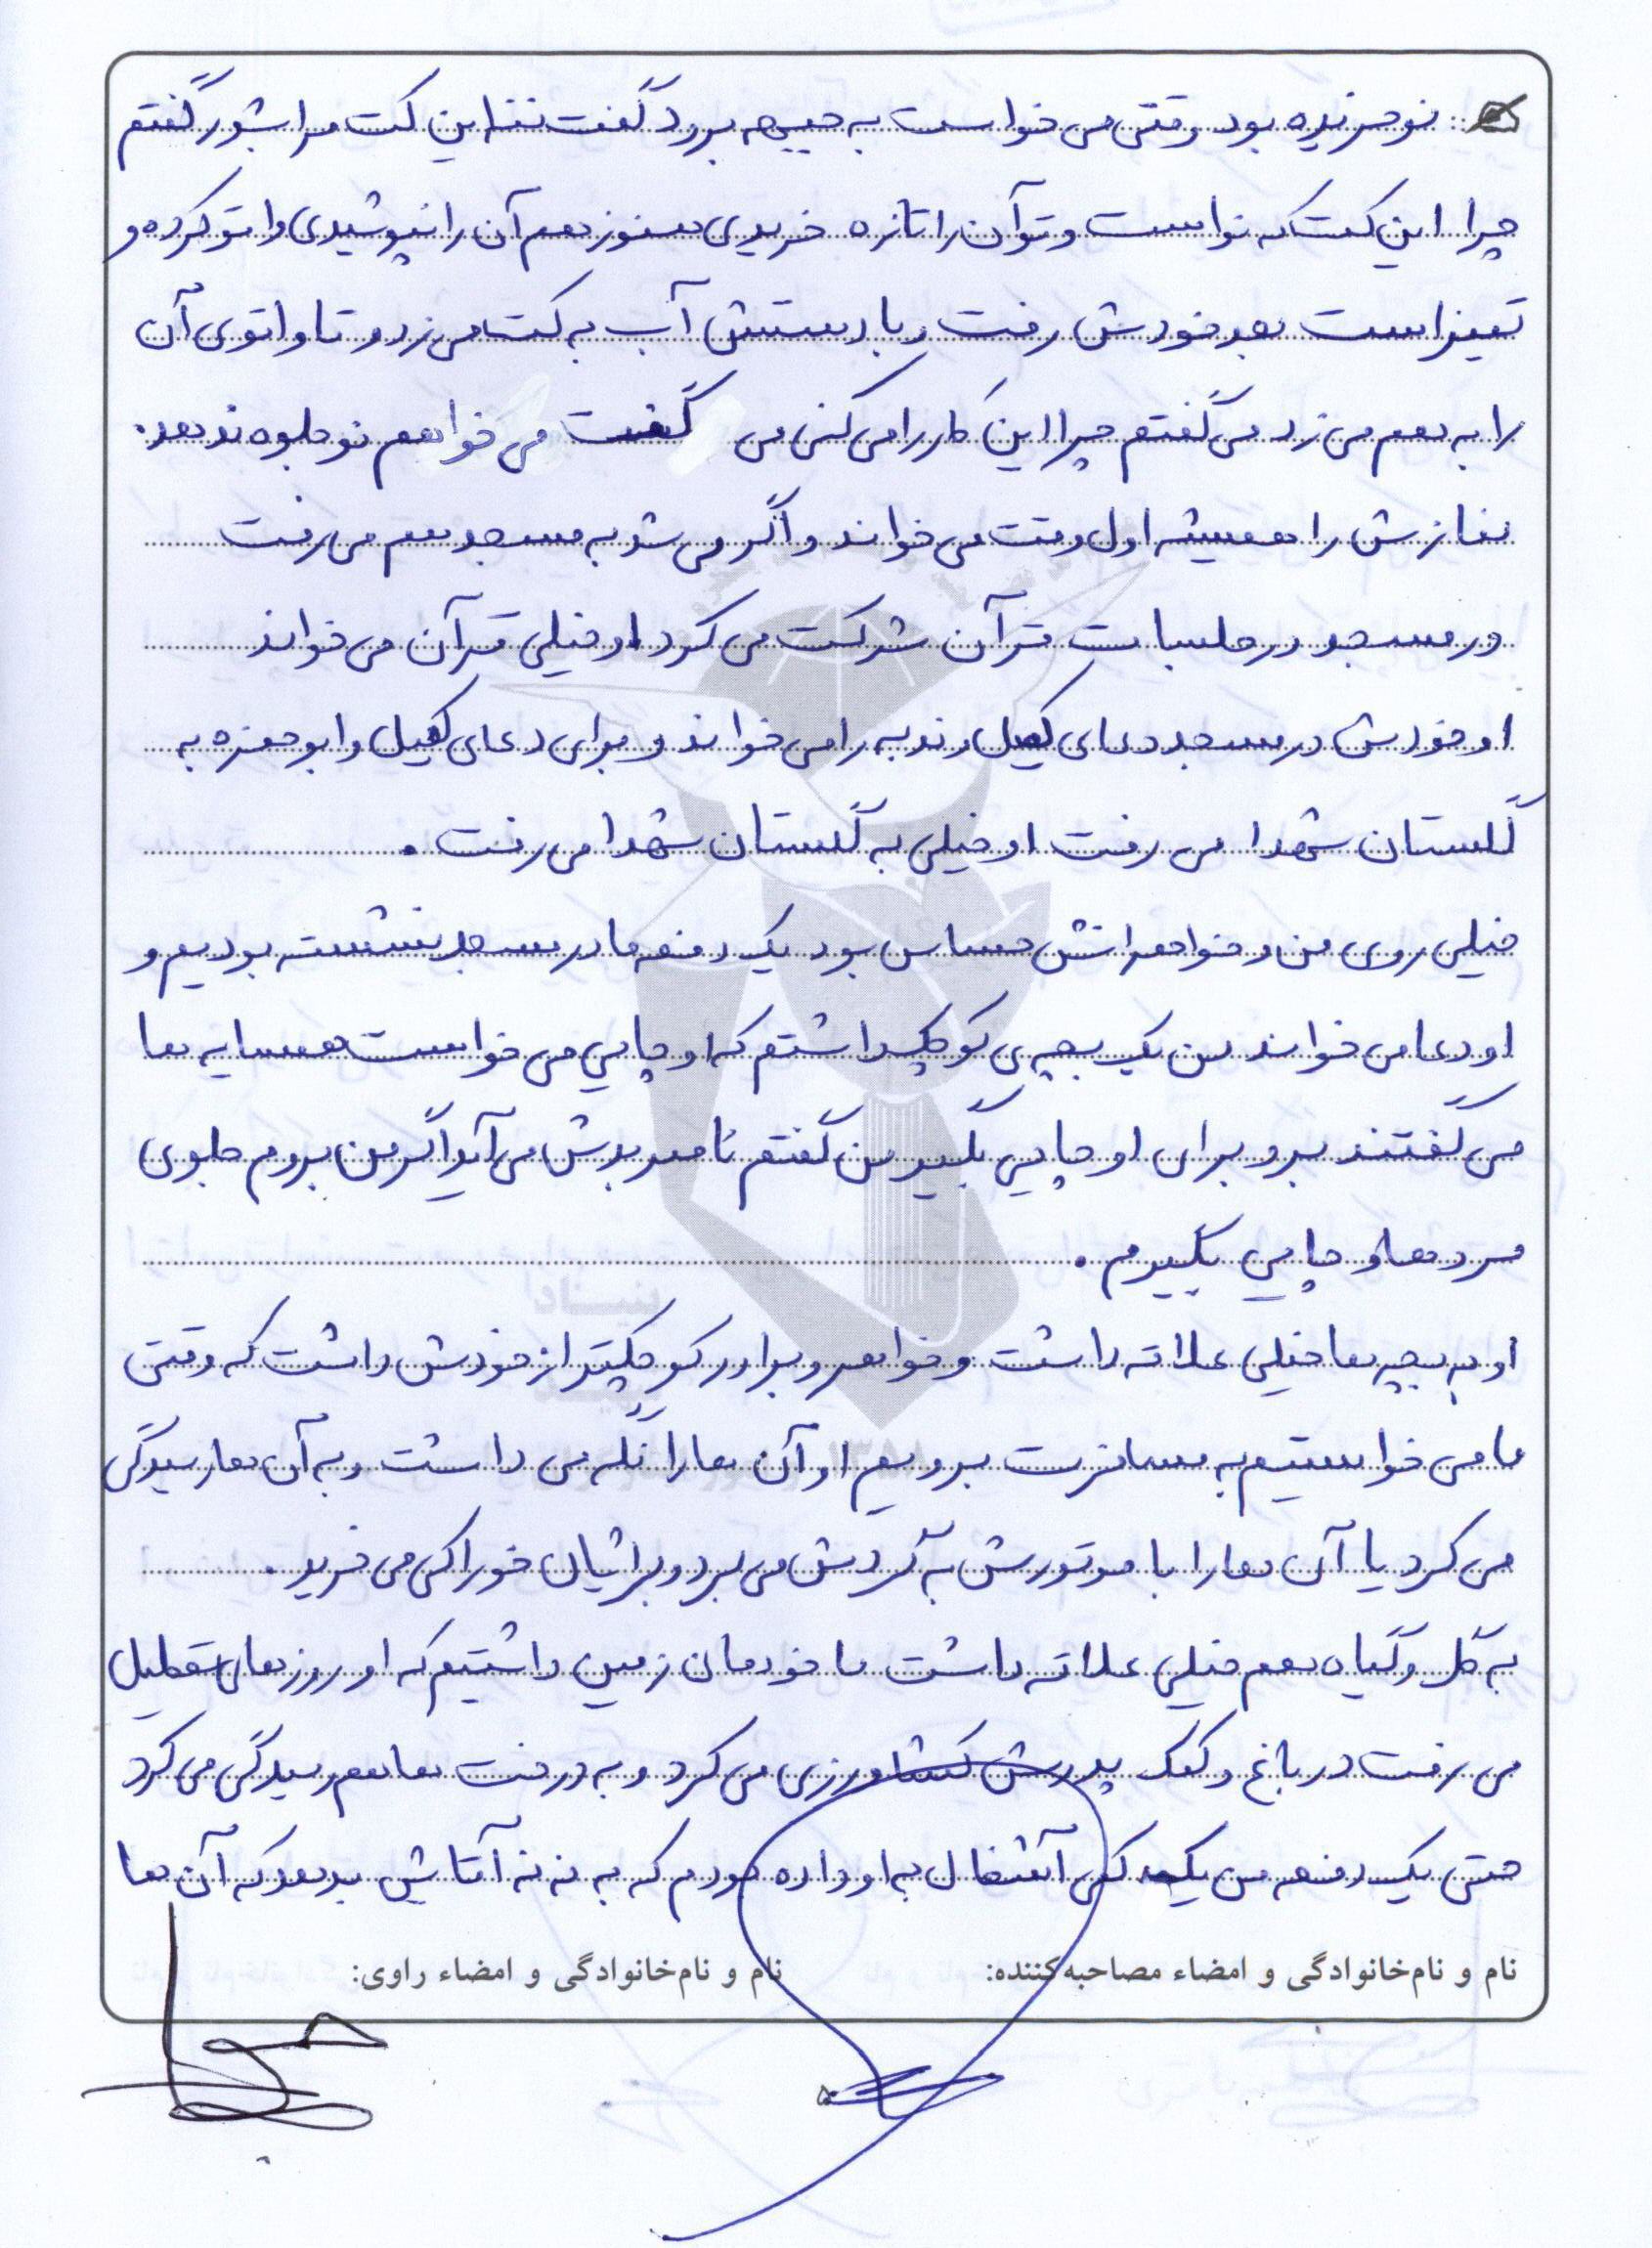 نو خریده بود وقتی می خواست به جبهه برود گفت ننه این کت مرا بشور گفتم
چرا این کت که نو است و تو آن را تازه خریدی هنوز هم آن را نپوشیدی و اتو کرده و
تمیز است بعد خودش رفت و با دستش آب به کت می زد و تا و اتوی آن
را به هم می زد می گفتم چرا این کار را می کنی می گفت می خواهم نو جلوه ندهد.
نمازش را همیشه اول وقت می خواند و اگر می شد به مسجد هم می رفت
در مسجد در جلسات قرآن شرکت می کرد او خیلی قرآن می خواند
او خودش در مسجد دعای کمیل و ندبه را می خواند و برای دعای کمیل و ابوحمزه به
گلستان شهدا می رفت او خیلی به گلستان شهدا می رفت .
خیلی روی من و خواهرانش حساس بود یک دفعه ما در مسجد نشسته بودیم و
او دعا می خواند من یک بچه ی کوچک داشتم که او چایی می خواست همسایه ها
می گفتند برو برای او چایی بگیر من گفتم نا صر بدش می آید اگر من بروم جلوی
مردها و چایی بگیرم .
او به بچه ها خیلی علاقه داشت و خواهر و برادر کوچکتر از خودش داشت که وقتی
ما می خواستیم به مسافرت برویم او آن ها را نگه می داشت و به آن ها رسیدگی
می کرد یا آن ها را با موتورش به گردش می برد و براشیان خوراکی می خرید .
به گل و گیاه هم خیلی علاقه داشت ما خودمان زمین داشتیم که او روزهای تعطیل
می رفت در باغ و کمک پدرش کشاورزی می کرد و به درخت ها هم رسیدگی می کرد
حتی یک دفعه من یک کمی آشغال به او داده بودم که به ننه آقایش بدهد که آن ها
نام و نام‌خانوادگی و امضاء مصاحبه‌کننده: نام و نام‌خانوادگی و امضاء راوی:
۵